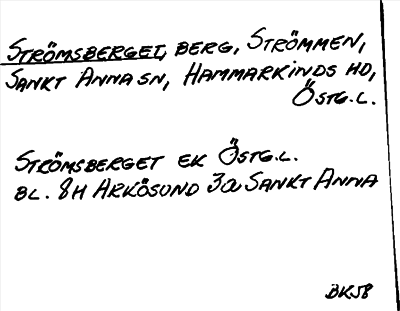 STRÖMSBERGET, BERG, STRÖMMEN,
SANKT ANNA SN, HAMMARKINDS HD,
ÖSTG.L.
STRÖMSBERGET EK ÖSTG.L.
BL. 8H ARKÖSUND 3a SANKT ANNA
BK58